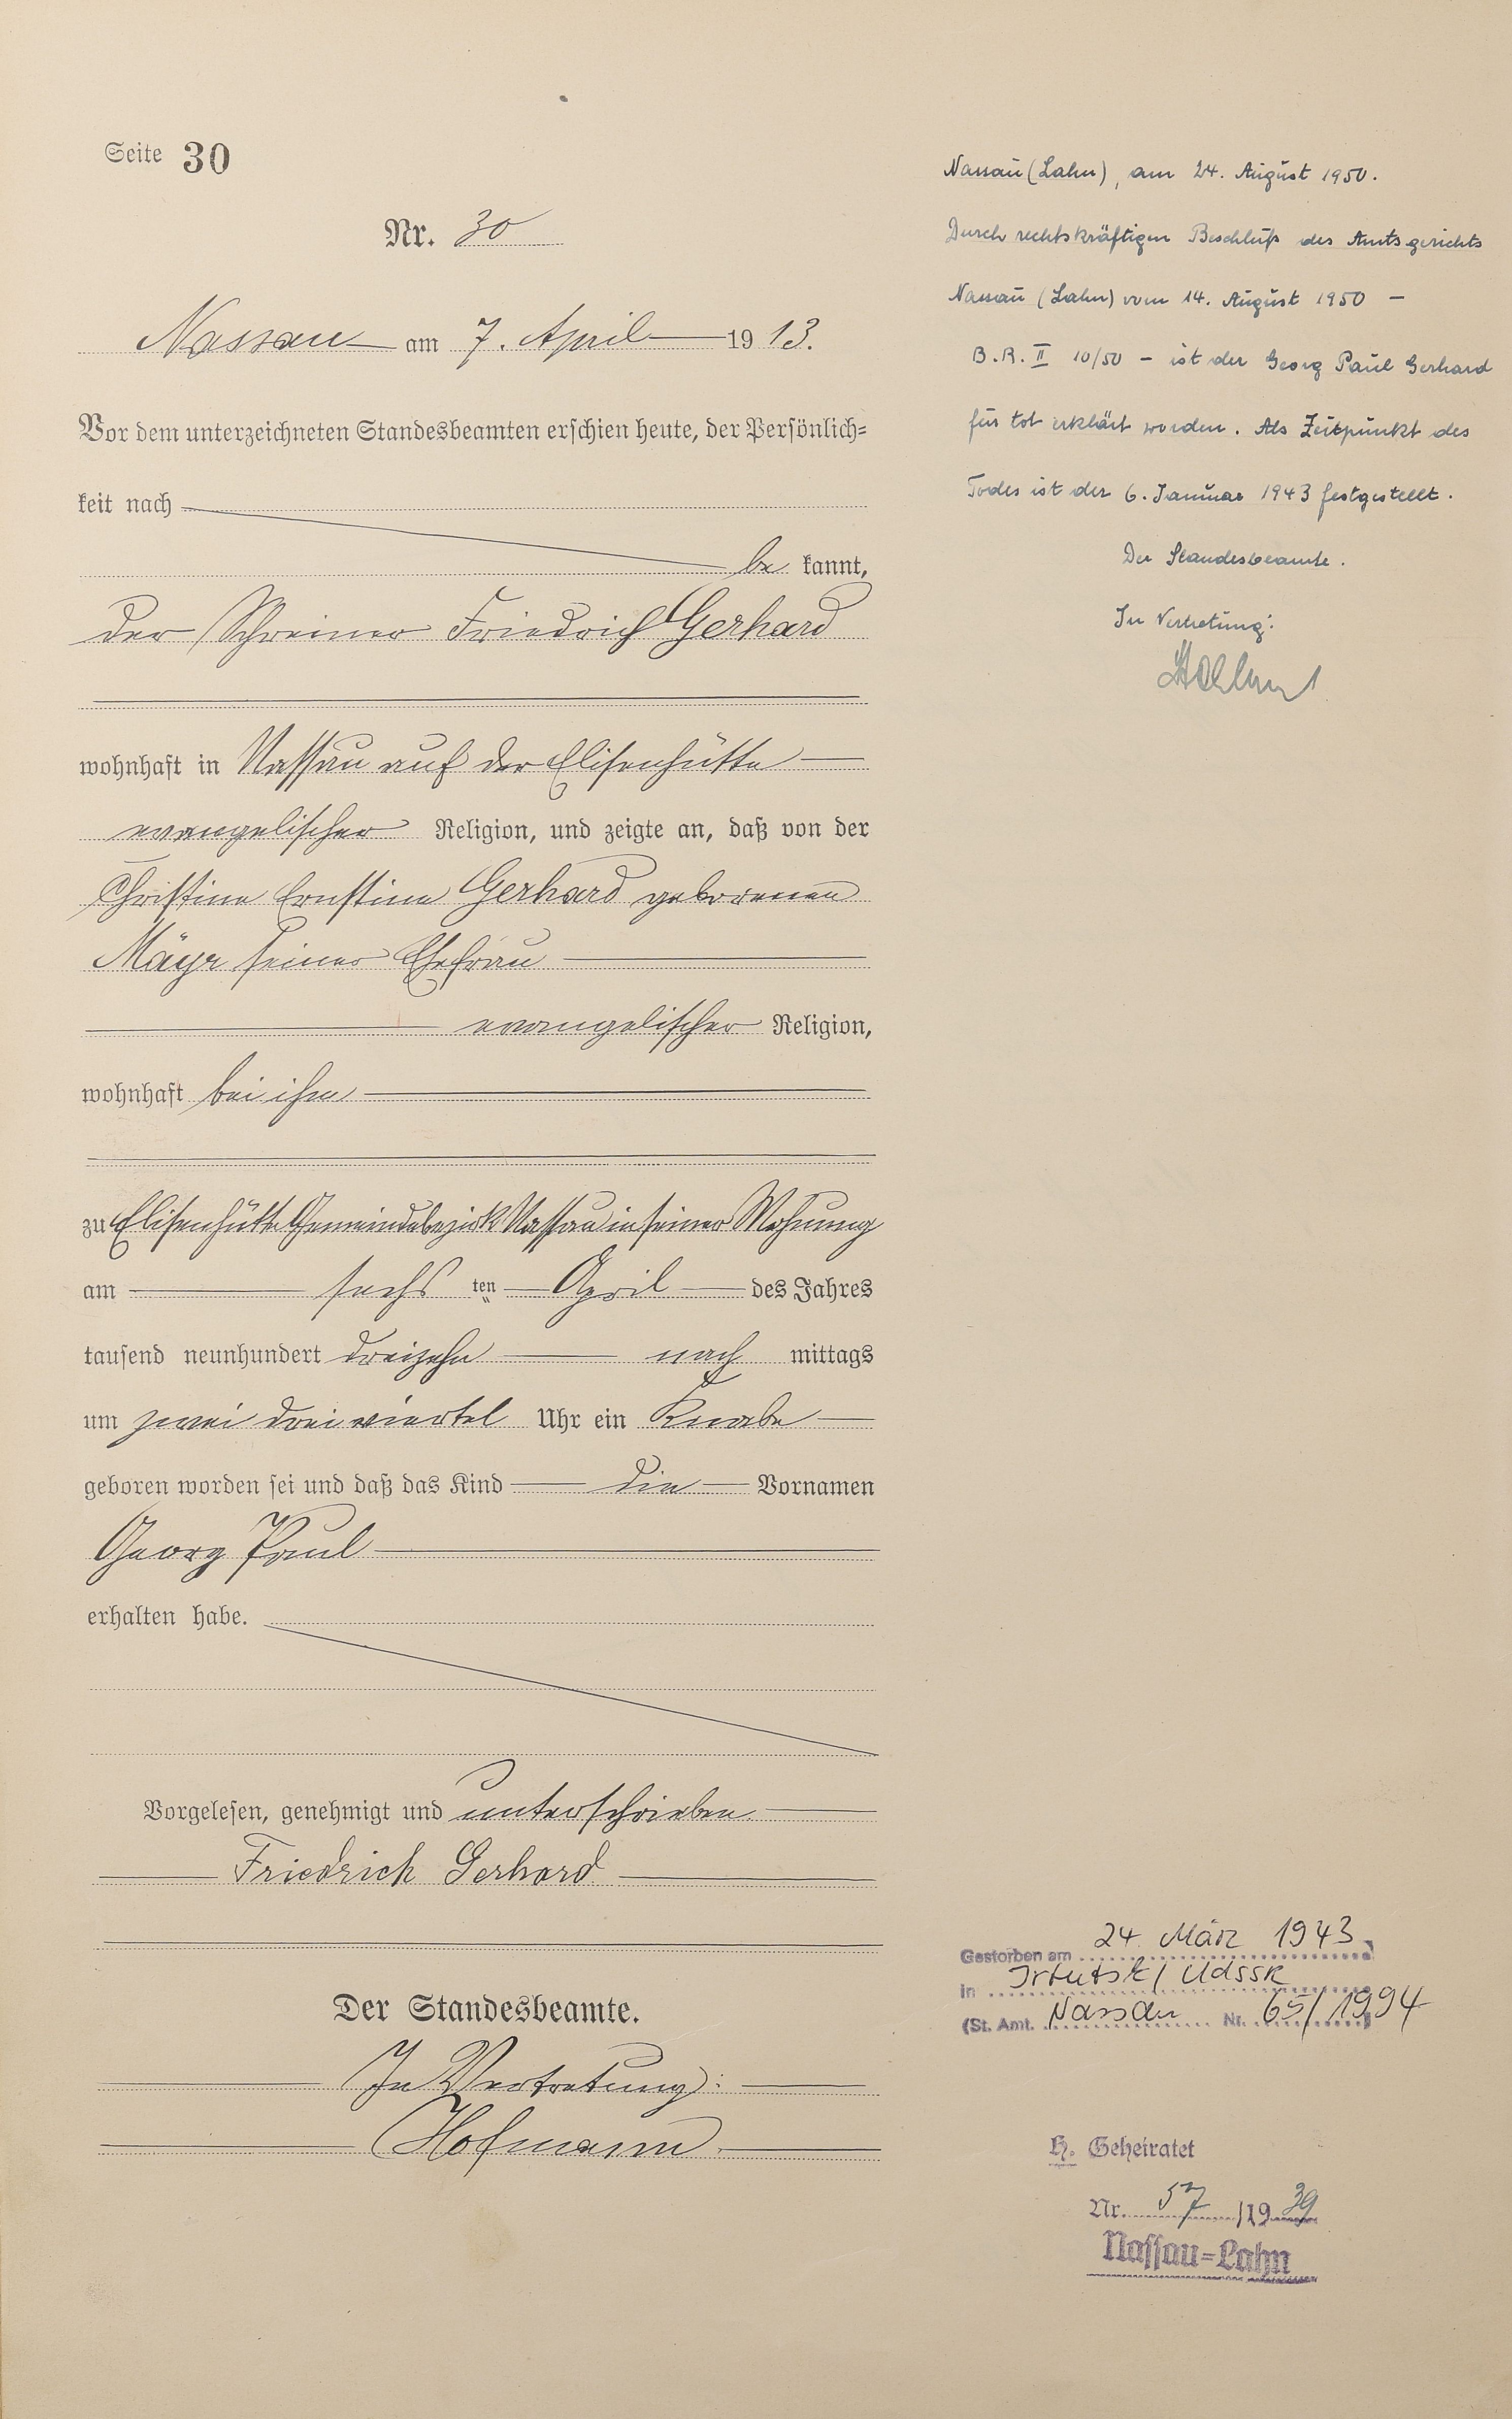 Seite 30
Nr. 30
Nassau am 7. April 1913.
Vor dem unterzeichneten Standesbeamten erschien heute, der Persönlich=
keit nach
be kannt,
der Schreiner Friedrich Gerhard
wohnhaft in Nassau auf der Elisenhütte
evangelischer Religion, und zeigte an, daß von der
Christine Ernstine Gerhard geborenen
Mäyr seiner Ehefrau
evangelischer Religion,
wohnhaft bei ihm
zu Elisenhütte Gemeindebezirk Nassau in seiner Wohnung
am sechs ten April des Jahres
tausend neunhundert dreizehn nach mittags
um zwei dreiviertel Uhr ein Knabe
geboren worden sei und daß das Kind die Vornamen
Georg Paul
erhalten habe.
Vorgelesen, genehmigt und unterschrieben
Friedrich Gerhard
Der Standesbeamte.
In Vertretung:
Hofmann
Nassau (Lahn), am 24. August 1950.
Durch rechtskräftigen Beschluß des Amtsgerichts
Nassau (Lahn) vom 14. August 1950 –
B.R. II 10/50 – ist der Georg Paul Gerhard
für tot erklärt worden. Als Zeitpunkt des
Todes ist der 6. Januar 1943 festgestellt.
Der Standesbeamte.
In Vertretung:
Gestorben am 24. März 1943
in Irkutsk / UdSSR
(St. Amt. Nassau Nr. 65/1994
H. Geheiratet
Nr. 57 /1939
Nassau=Lahn